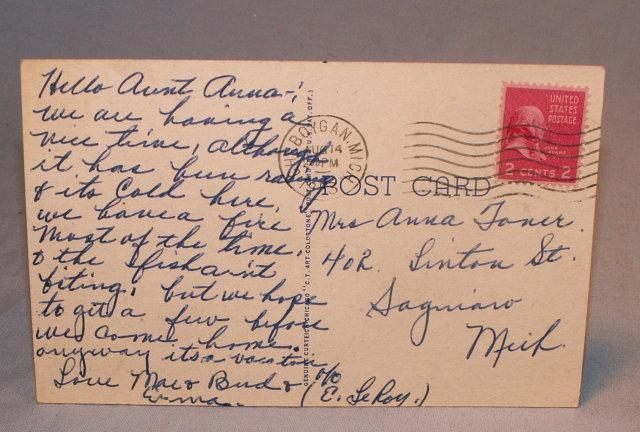 Hello Aunt Anna-;
we are having a
nice time, although
it has been rainy
& its cold here,
we have a fire
most of the time.
& the fish ain't
biting, but we hope
to get a few before
we come home.
anyway its a vacation
Love Mae & Bud &
Erma.
CHEBOYGAN, MICH.
14
PM
UNITED
STATES
POSTAGE
JOHN
ADAMS
2 CENTS 2
POST CARD
Mrs Anna Toner.
402 Linton St.
Saginaw
Mich
c/o
(E. LeRoy.)
GENUINE CURTEICH-CHICAGO "C.T. ART-COLORTONE"